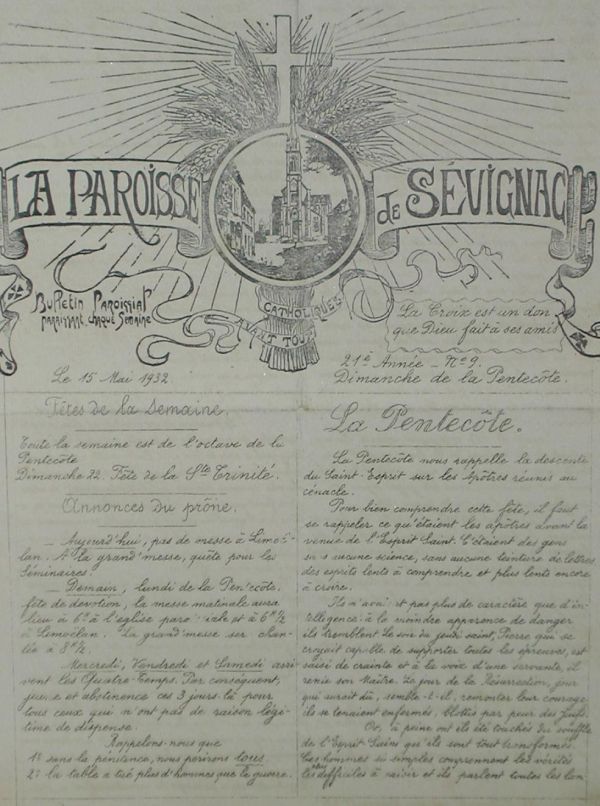 LA PAROISSE de SÉVIGNAC
Bulletin Paroissial
paraissant chaque Semaine
CATHOLIQUES
AVANT TOUT
La Croix est un don
que Dieu fait à ses amis
Le 15 Mai 1932
21e Année - No 9.
Dimanche de la Pentecôte.
Fêtes de la Semaine.
Toute la semaine est de l'octave de la
Pentecôte
Dimanche 22. Fête de la Ste Trinité.
Annonces du prône.
— Aujourd'hui, pas de messe à Limoë-
lan. A la grand'messe, quête pour les
Séminaires.
— Demain, lundi de la Pentecôte,
fête de dévotion, la messe matinale aura
lieu à 6h à l'église paroissiale et à 6h 1/2
à Limoëlan. La grand'messe sera chan-
tée à 8h 1/2.
Mercredi, Vendredi et Samedi arri-
vent les Quatre-Temps. Par conséquent,
jeûne et abstinence ces 3 jours-là pour
tous ceux qui n'ont pas de raison légi-
time de dispense.
Rappelons-nous que
1o sans la pénitence, nous périrons tous.
2o la table a tué plus d'hommes que la guerre.
La Pentecôte.
La Pentecôte nous rappelle la descente
du Saint-Esprit sur les Apôtres réunis au
cénacle.
Pour bien comprendre cette fête, il faut
se rappeler ce qu'étaient les apôtres avant la
venue de l'Esprit Saint. C'étaient des gens
sans aucune science, sans aucune teinture de lettres,
des esprits lents à comprendre et plus lents encore
à croire.
Ils n'avaient pas plus de caractère que d'in-
telligence: à la moindre apparence de danger
ils tremblent. Le soir du jeudi saint, Pierre qui se
croyait capable de supporter toutes les épreuves, est
saisi de crainte et à la voix d'une servante, il
renie son Maître. Le jour de la Résurrection, jour
qui aurait dû, semble-t-il, remonter leur courage
ils se tenaient enfermés, blottis par peur des Juifs.
Or, à peine ont ils été touchés du souffle
de l'Esprit-Saint que ils sont tout transformés.
Ces hommes si simples comprennent les vérités
les plus difficiles à saisir et ils parlent toutes les lan-